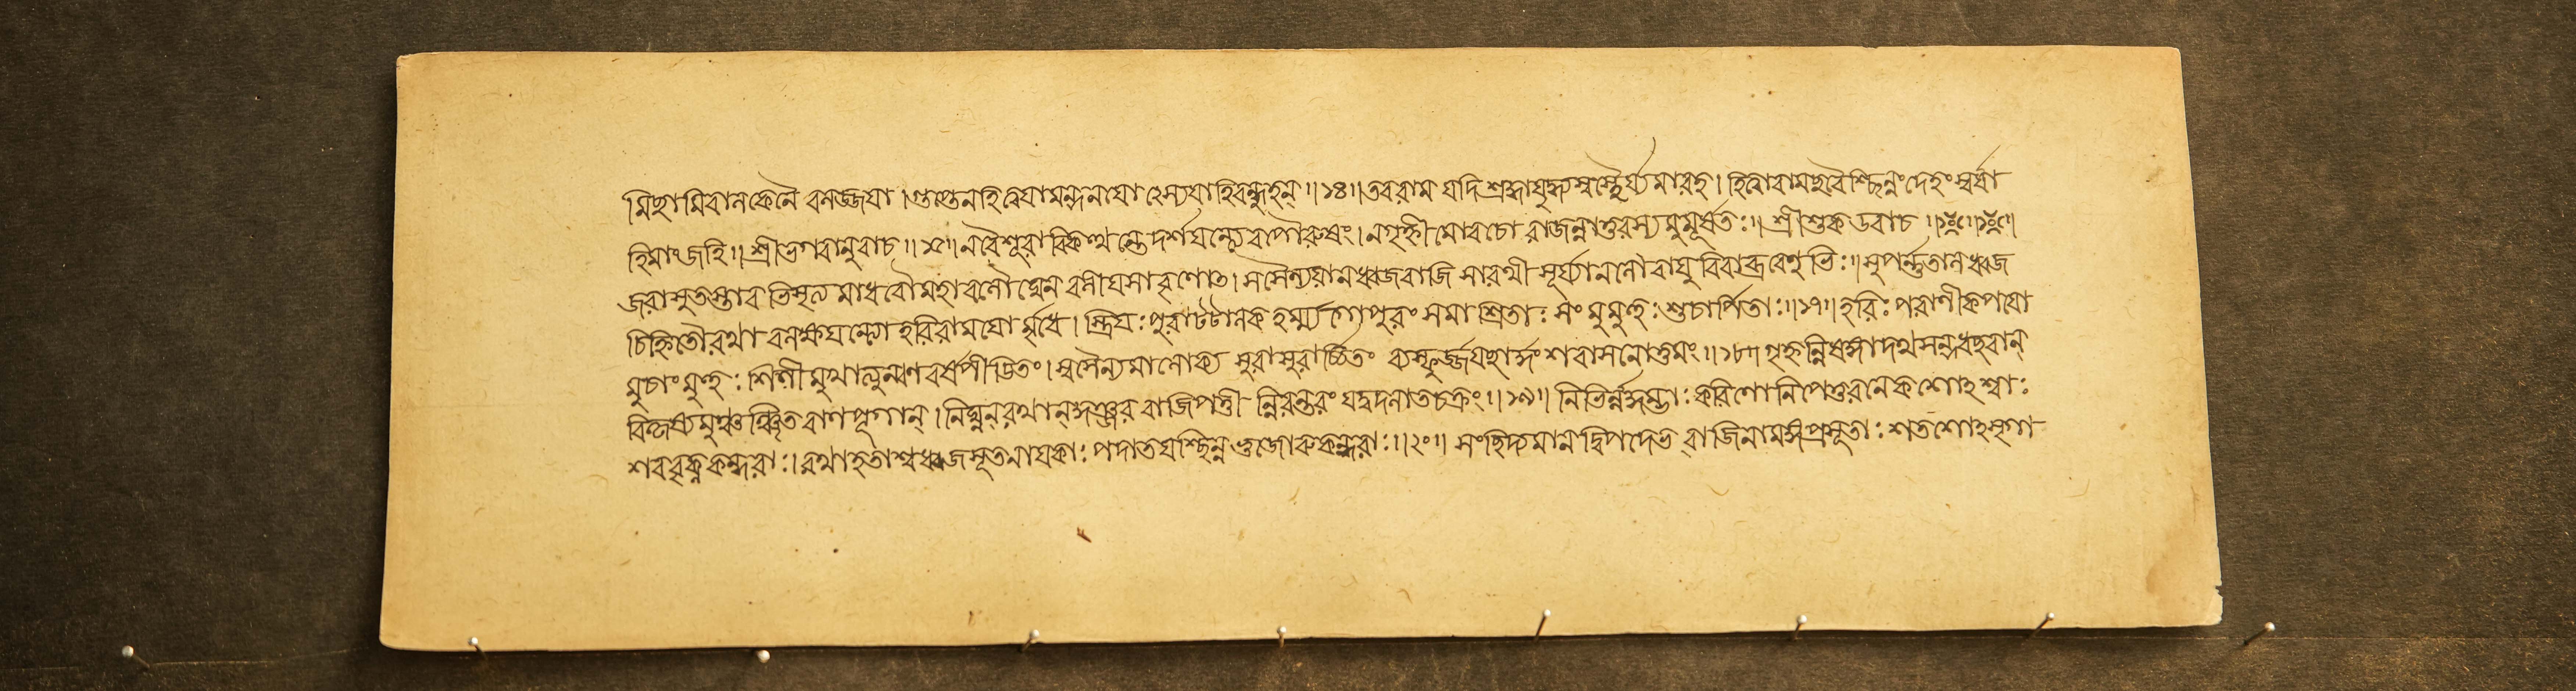 মিছামিবালেকেনৈ বলজ্জযা ।গুপ্তেনহিত্বযামন্দনযোৎস্যেযাহিবন্ধুহন্॥১৪॥তবরাম যদি শ্রদ্ধাযুদ্ধ্যস্বস্থৈর্য্যমাবহ। হিত্বাবামছরৈশ্ছিন্নংদেহংস্বর্যা
হিমাংজহি॥শ্রীভগবানুবাচ॥১৫॥নবৈশূরাবিকত্থন্তেদর্শযন্ত্যেবপৌরুষং।নগৃহ্ণীমোবচো রাজন্নাতুরস্যমুমূর্ষতঃ॥ শ্রীশুক উবাচ ॥১৬॥
জরাসুতস্তাব ভিসৃত্য মাধবৌমহাবলৌঘেন বলীযসাবৃণোৎ।সসৈন্যযানধ্বজবাজি সারথী সূর্য্যানলৌবাযু বিবাভ্ররেণুভিঃ॥সুপর্ন্নতালধ্বজ
চিহ্নিতৌরথা বলক্ষযন্ত্যো হরিরামযোর্মৃধে। স্ত্রিযঃপুরাট্টালক হর্ম্ম্যগোপুরং সমাশ্রিতাঃ সং মুমুহুঃশুচার্পিতাঃ॥১৭॥হরিঃ পরাণীকপযো
মুচাংমুহুঃ শিলীমুখাত্যুল্বণবর্ষপীডিতং।স্বসৈন্যমালোক্য সুরাসুরার্চ্চিতং ব্যস্ফূর্জ্জযছার্ঙ্গংশরাসনোত্তমং॥১৮॥গৃহ্ণন্নিষঙ্গাদথসন্দধছরান্
বিকৃষ্যমুঞ্চঞ্ছিতবাণপূগান্।নিঘ্নন্রথান্কুঞ্জর বাজিপত্তী ন্নিরন্তরং যদ্বদলাতচক্রং॥১৯॥ নির্ভিন্নকুম্ভাঃকরিণোনিপেতুরনেকশোঽশ্বাঃ
শরবৃক্নকন্ধরাঃ।রথাহতাশ্বধ্বজসূতনাযকাঃ পদাতযশ্ছিন্নভুজোরুকন্ধরাঃ॥২০॥ সংছিদ্যমানদ্বিপদেভ বাজিনামঙ্গপ্রসূতাঃ শতশোঽসৃগা